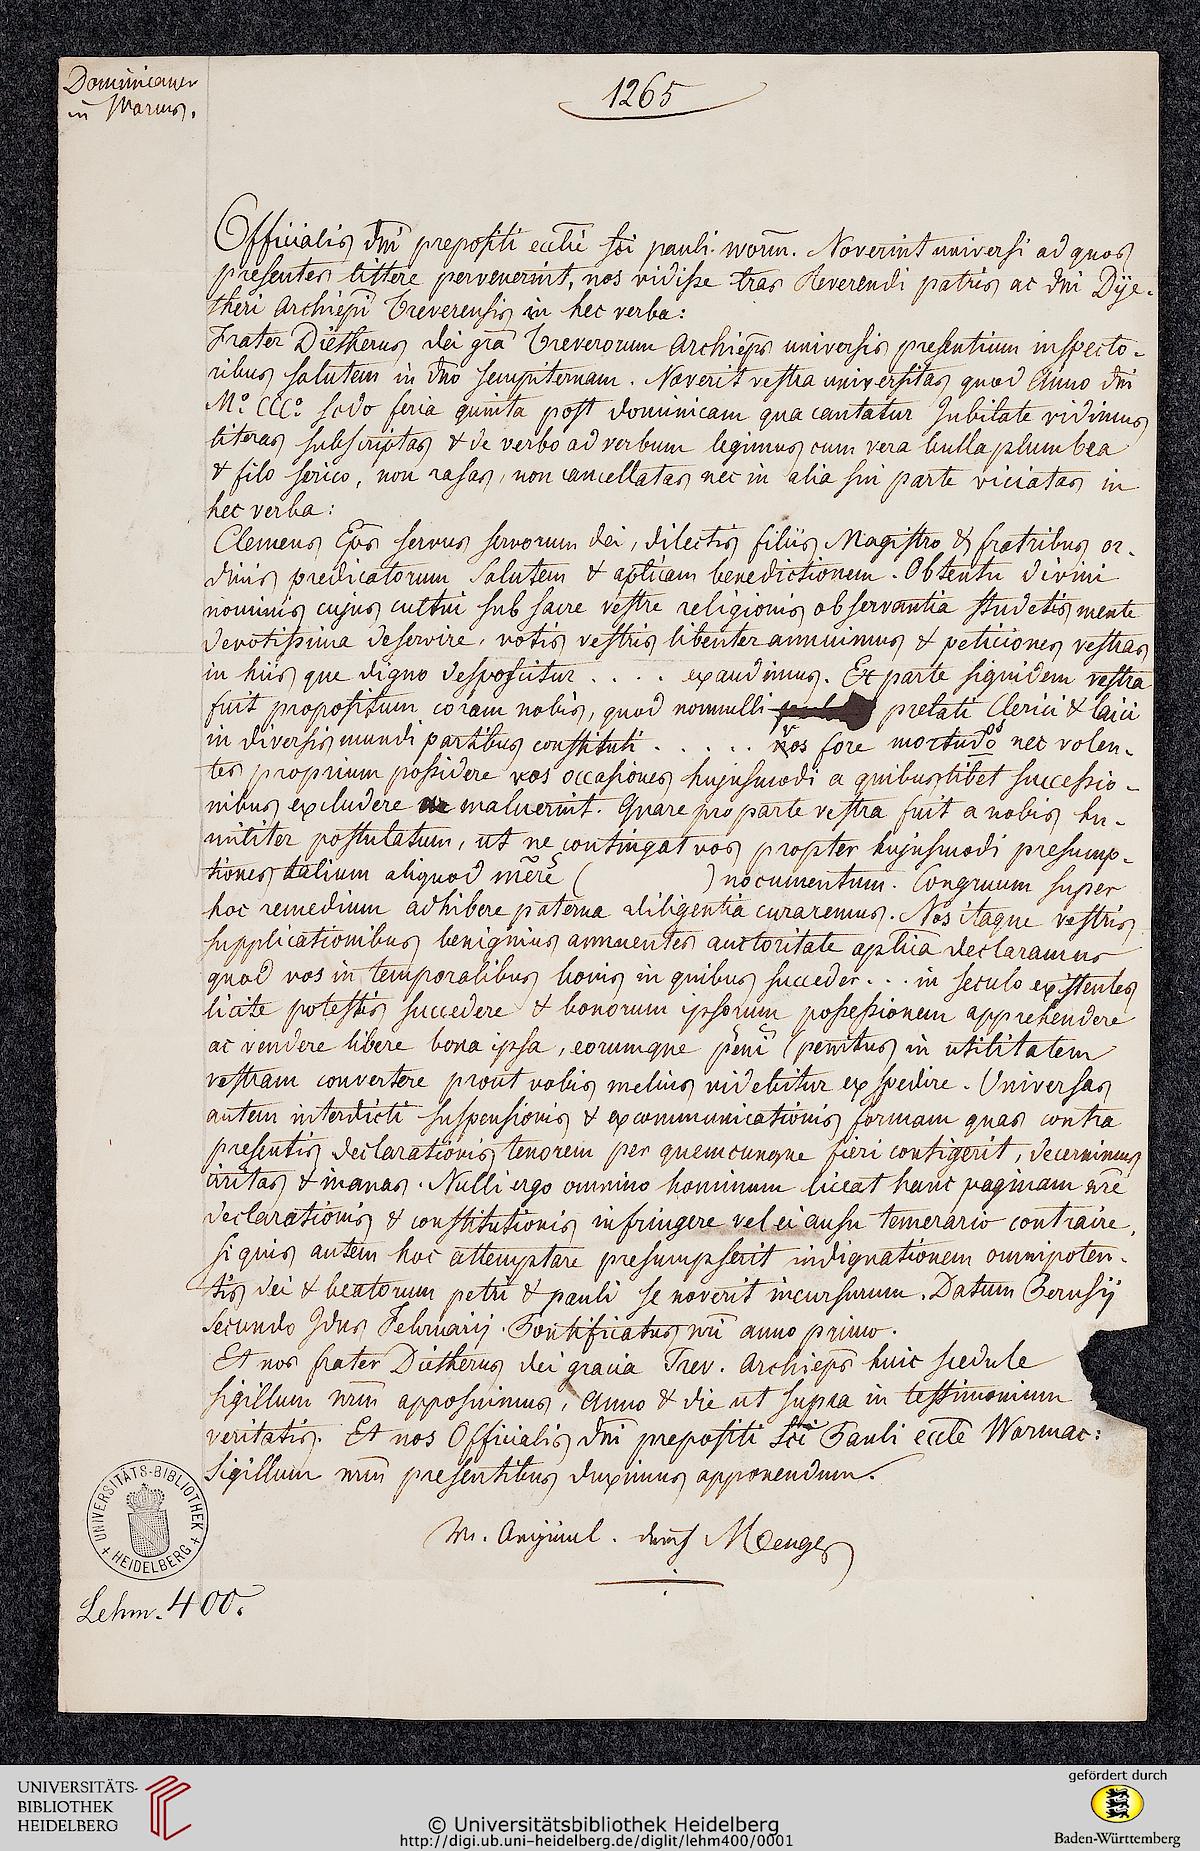 Dominicaner
in Worms.
1265
Officialis dni prepositi ecclie sci pauli worm. Noverint universi ad quos
presentes littere pervenerint, nos vidisse tras Reverendi patris ac dni Dye-
theri Archiepi Treverensis in hec verba:
Frater Dietherus dei gra Treverorum Archieps universis presentium inspecto-
ribus salutem in dno sempiternam. Noverit vestra universitas quod Anno dni
M° CCC° scdo feria quinta post dominicam qua cantatur Jubilate vidimus
literas subscriptas & de verbo ad verbum legimus cum vera bulla plumbea
& filo serico, non rasas, non cancellatas nec in alia sui parte viciatas in
hec verba:
Clemens Eps servus servorum dei, dilectis filiis Magistro & fratribus or-
dinis predicatorum Salutem & aplicam benedictionem. Obtentu divini
nominis cujus cultui sub sacre vestre religionis observantia studetis mente
devotissima deservire, votis vestris libenter annuimus & peticiones vestras
in hiis que digno desposcitur . . . . exaudimus. Ex parte siquidem vestra
fuit propositum coram nobis, quod nonnulli prelati Clerici & laici
in diversis mundi partibus constituti . . . . . . vos fore mortuos nec volen-
tes proprium possidere vos occasiones hujusmodi a quibuslibet successio-
nibus excludere maluerint. Quare pro parte vestra fuit a nobis hu-
militer postulatum, ut ne contingat vos propter hujusmodi presump-
tiones talium aliquod mere ( ) nocumentum. Congruum super
hoc remedium adhibere paterna diligentia curaremus. Nos itaque vestris
supplicationibus benignius annuentes auctoritate aplica declaramus
quod vos in temporalibus bonis in quibus succeder . . . in seculo existentes
licite potestis succedere & bonorum ipsorum possessionem apprehendere
ac vendere libere bona ipsa, eorumque peni (penitus) in utilitatem
vestram convertere prout vobis melius videbitur expedire. Universas
autem interdicti suspensionis & excommunicationis formam quas contra
presentis declarationis tenorem per quemcunque fieri contigerit, decernimus
irritas & inanas. Nulli ergo omnino hominum liceat hanc paginam nre
declarationis & constitutionis infringere vel ei ausu temerario contraire,
si quis autem hoc attemptare presumpserit indignationem omnipoten-
tis dei & beatorum petri & pauli se noverit incursurum. Datum Perusij
Secundo Idus Februarij. Pontificatus nri anno primo.
Et nos frater Dietherus dei gracia Trev. Archieps huic scedule
sigillum nrm apposuimus, Anno & die ut supra in testimonium
veritatis. Et nos Officialis dni prepositi sci Pauli eccle Wormac:
Sigillum nrm presentibus duximus apponendum.
m. Original. durch Moenges
UNIVERSITÄTS-BIBLIOTHEK
HEIDELBERG
Lehm. 400.
UNIVERSITÄTS-
BIBLIOTHEK
HEIDELBERG
© Universitätsbibliothek Heidelberg
http://digi.ub.uni-heidelberg.de/diglit/lehm400/0001
gefördert durch
Baden-Württemberg